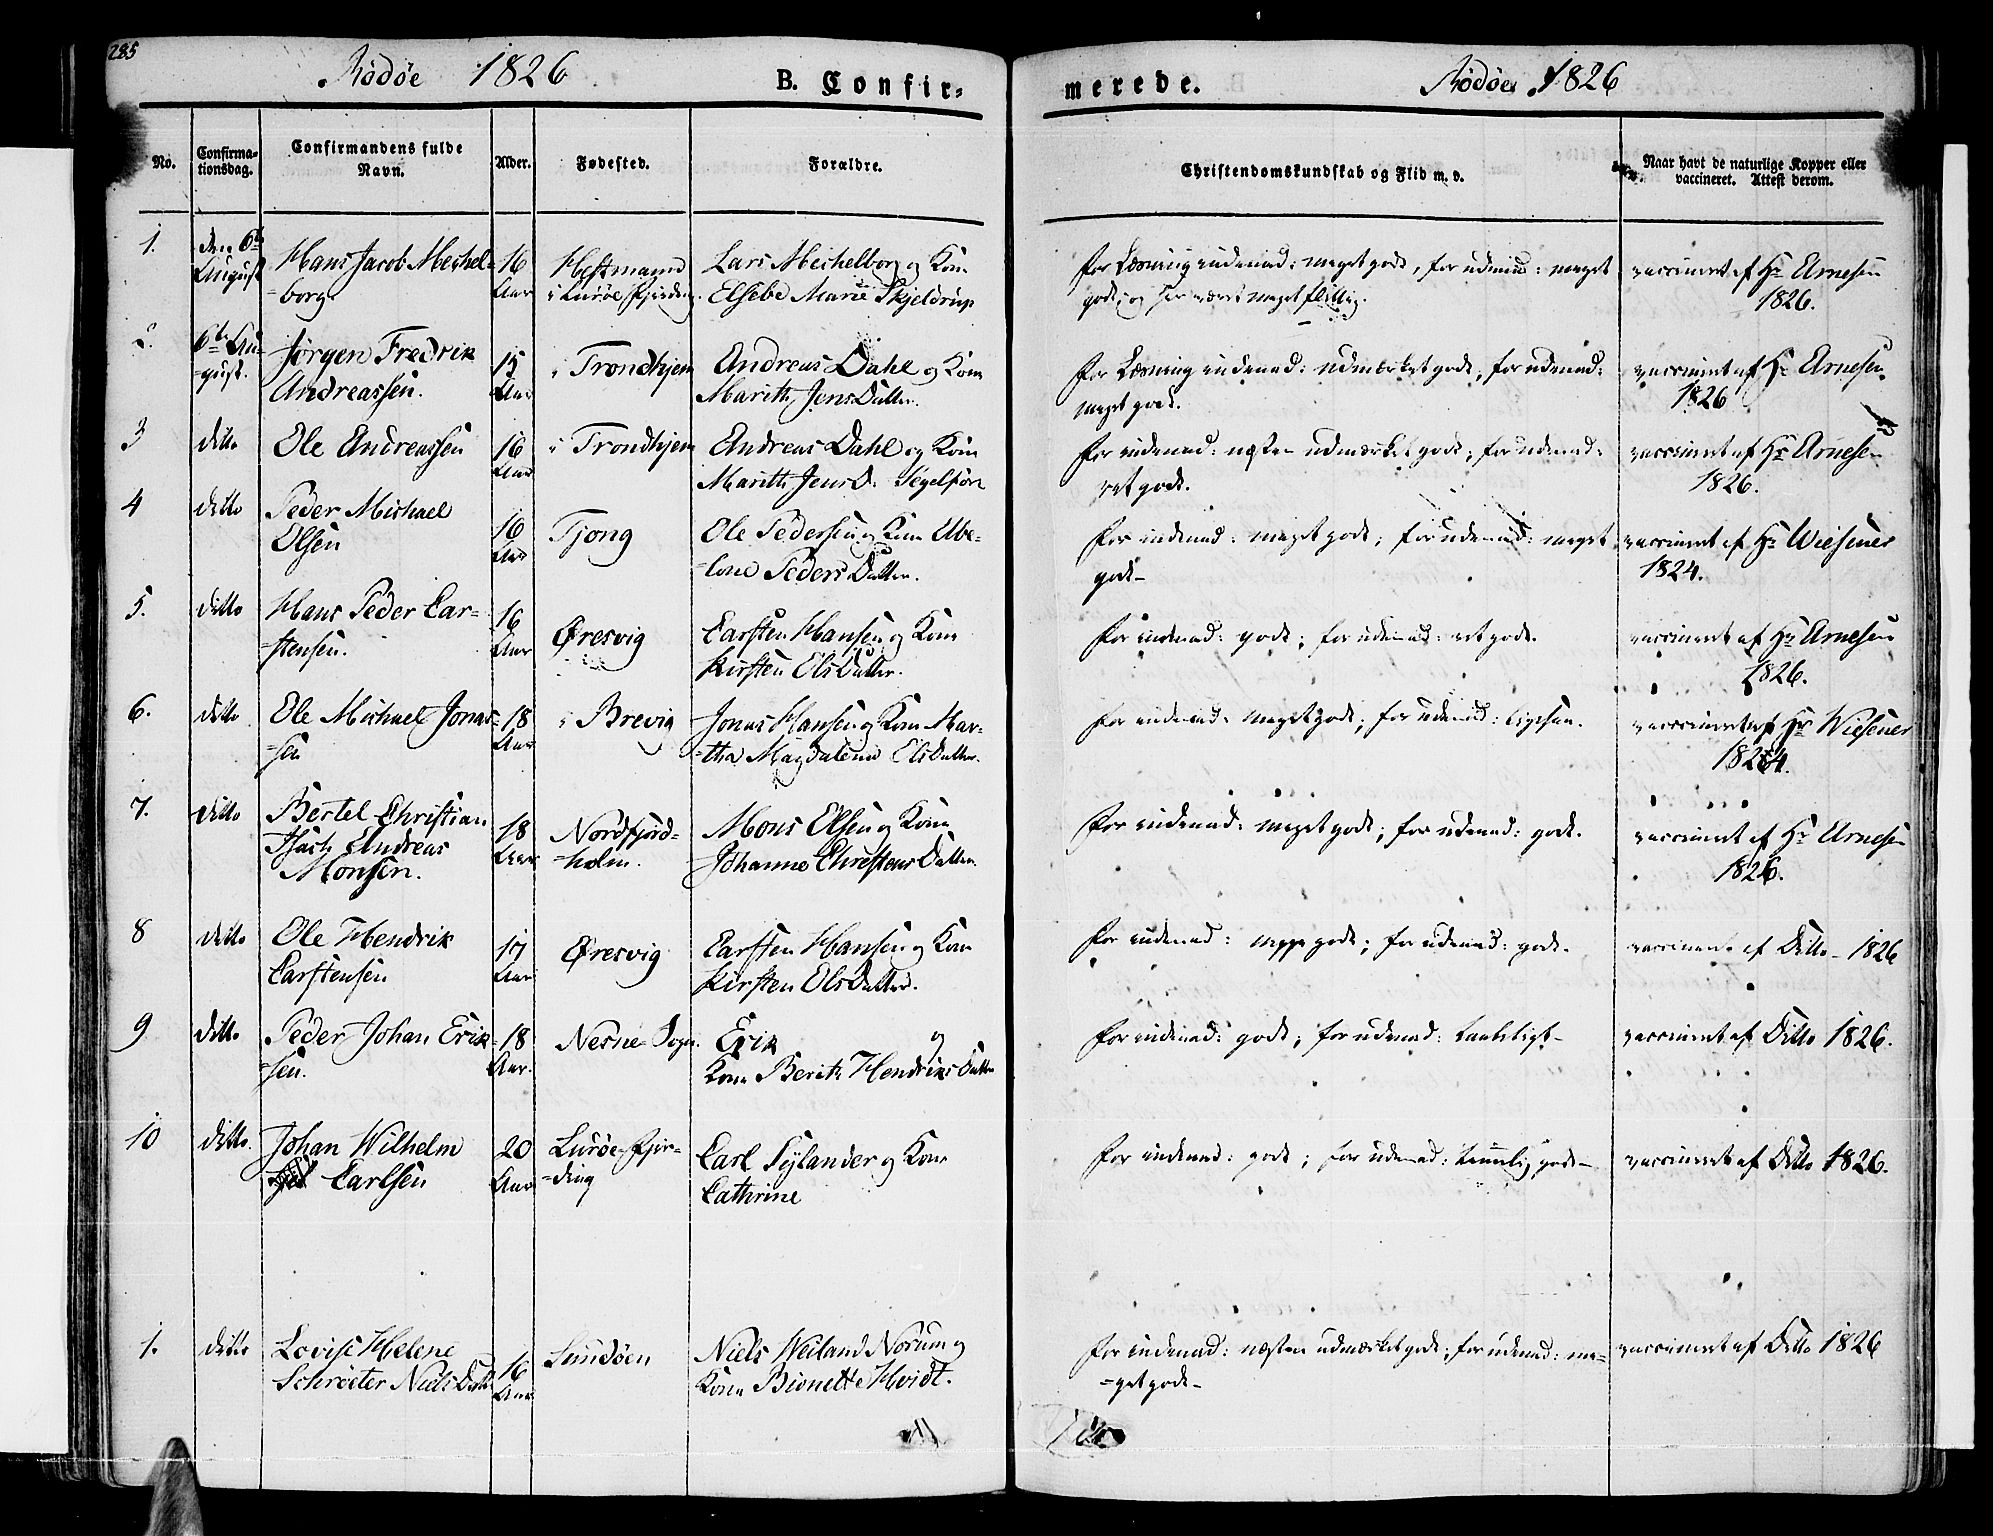 285
Rødøe 1826
B. Confir-
merede.
Rødøe 1826
No.
Confirma-
tionsdag.
Confirmandens fulde
Navn.
Alder.
Fødested.
Forældre.
Christendomskundskab og Flid m. v.
Naar havt de naturlige Kopper eller
vaccineret. Attest derom.
1.
den 6te
August
Hans Jacob Mechel-
borg
16
Aar
Hestmand
i Lurøe Fjerding
Lars Mechelborg og Kone
Elsebe Marie Skjeldrup
for Læsning indenad: meget godt, for udenad: meget
godt, og har været meget flittig.
vaccineret af Hr Arnesen
1826.
2.
6te Au-
gust.
Jørgen Fredrik
Andreassen.
15
Aar
i Trondhjem
Andreas Dahl og Kone
Marith JensDatter.
for Læsning indenad: udmærket godt, for udenad:
meget godt.
vaccineret af Hr Arnesen
1826
3
ditto
Ole Andreassen
16
Aar
i Trondhjem
Andreas Dahl og Kone
Marith JensD. Segelfore
for indenad: næsten udmærket godt; for udenad:
ret godt.
vaccineret af Hr Arnesen
1826.
4
ditto
Peder Michael
Olsen
16
Aar
Tjong
Ole Pedersen og Kone Abe-
lone PedersDatter.
for indenad: meget godt; for udenad: meget
godt
vaccineret af Hr Wiesener
1824.
5.
ditto
Hans Peder Car-
stensen.
16
Aar
Øresvig
Carsten Hansen og Kone
Kirsten OlsDatter.
for indenad: godt; for udenad: ret godt.
vaccineret af Hr Arnesen
1826.
6.
ditto
Ole Michael Jonas-
sen
18
Aar
i Brevig
Jonas Hansen og Kone Mar-
tha Magdalena OlsDatter.
for indenad: meget godt; for udenad: ligesaa.
vaccineret af Hr Wiesener
1824.
7.
ditto
Bertel Christian
Isach Andreas
Monsen.
18
Aar
Nordfjord-
holm.
Mons Olsen og Kone
Johanne ChristensDatter
for indenad: meget godt; for udenad: godt.
vaccineret af Hr Arnesen
1826.
8
ditto
Ole Hendrik
Carstensen
17
Aar
Øresvig
Carsten Hansen og Kone
Kirsten OlsDatter.
for indenad: meget godt; for udenad: godt.
vaccineret af Ditto 1826
9
ditto
Peder Johan Erik-
sen.
18
Aar.
Nesne Sogn.
Erik og
Kone Berith HendriksDatter
for indenad: godt; for udenad: taaleligt
vaccineret af Ditto 1826.
10
ditto
Johan Wilhelm
Carlsen
20
Aar
Lurøe Fjer-
ding
Carl Sylander og Kone
Cathrine
for indenad: godt; for udenad: temmelig godt
vaccineret af Ditto 1826.
1.
ditto
Lovise Helene
Schrøeter NielsDatter
16
Aar
Sundøen
Niels Weiland Norum og
Kone Bionette Hvidt.
for indenad: næsten udmærket godt; for udenad: me-
get godt
vaccineret af Ditto 1826